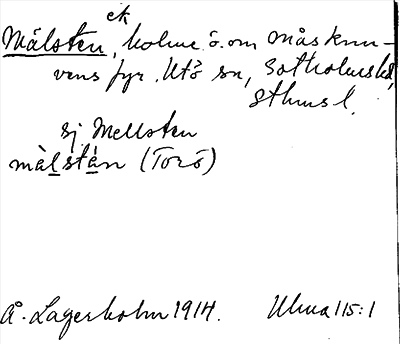 ek
Mälsten, holme ö. om Måsknu-
vens fyr. Utö sn, Sotholms hd,
Sthms l.
sj. Mellsten
mà̀lstá̀n (Torö)
Å. Lagerholm 1914. Ulma 115:1